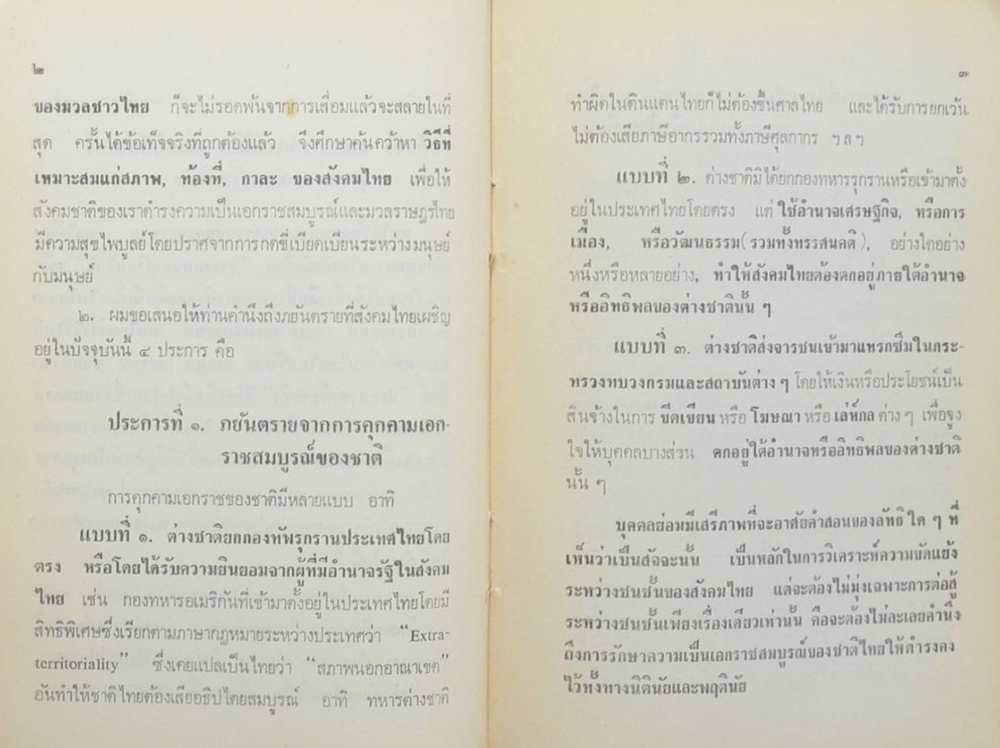 ๒
ของมวลชาวไทย ก็จะไม่รอดพ้นจากการเสื่อมแล้วจะสลายในที่
สุด ครั้นได้ข้อเท็จจริงที่ถูกต้องแล้ว จึงศึกษาค้นคว้าหา วิธีที่
เหมาะสมแก่สภาพ, ท้องที่, กาละ ของสังคมไทย เพื่อให้
สังคมชาติของเราดำรงความเป็นเอกราชสมบูรณ์และมวลราษฎรไทย
มีความสุขไพบูลย์โดยปราศจากการกดขี่เบียดเบียนระหว่างมนุษย์
กับมนุษย์
๒. ผมขอเสนอให้ท่านคำนึงถึงภยันตรายที่สังคมไทยเผชิญ
อยู่ในปัจจุบันนี้ ๔ ประการ คือ
ประการที่ ๑. ภยันตรายจากการคุกคามเอก-
ราชสมบูรณ์ของชาติ
การคุกคามเอกราชของชาติมีหลายแบบ อาทิ
แบบที่ ๑. ต่างชาติยกกองทัพรุกรานประเทศไทยโดย
ตรง หรือโดยได้รับความยินยอมจากผู้ที่มีอำนาจรัฐในสังคม
ไทย เช่น กองทหารอเมริกันที่เข้ามาตั้งอยู่ในประเทศไทยโดยมี
สิทธิพิเศษซึ่งเรียกตามภาษากฎหมายระหว่างประเทศว่า “Extra-
territoriality” ซึ่งเคยแปลเป็นไทยว่า “สภาพนอกอาณาเขต”
อันทำให้ชาติไทยต้องเสียอธิปไตยสมบูรณ์ อาทิ ทหารต่างชาติ
๓
ทำผิดในดินแดนไทยก็ไม่ต้องขึ้นศาลไทย และได้รับการยกเว้น
ไม่ต้องเสียภาษีอากรรวมทั้งภาษีศุลกากร ฯลฯ
แบบที่ ๒. ต่างชาติมิได้ยกกองทหารรุกรานหรือเข้ามาตั้ง
อยู่ในประเทศไทยโดยตรง แต่ ใช้อำนาจเศรษฐกิจ, หรือการ
เมือง, หรือวัฒนธรรม(รวมทั้งทรรศนคติ), อย่างใดอย่าง
หนึ่งหรือหลายอย่าง, ทำให้สังคมไทยต้องตกอยู่ภายใต้อำนาจ
หรืออิทธิพลของต่างชาตินั้น ๆ
แบบที่ ๓. ต่างชาติส่งจารชนเข้ามาแทรกซึมในกระ-
ทรวงทบวงกรมและสถาบันต่าง ๆ โดยให้เงินหรือประโยชน์เป็น
สินจ้างในการ ขีดเขียน หรือ โฆษณา หรือ เล่ห์กล ต่าง ๆ เพื่อจูง
ใจให้บุคคลบางส่วน ตกอยู่ใต้อำนาจหรืออิทธิพลของต่างชาติ
นั้น ๆ
บุคคลย่อมมีเสรีภาพที่จะอาศัยคำสอนของลัทธิ ใด ๆ ที่
เห็นว่าเป็นสัจจะนั้น เป็นหลักในการวิเคราะห์ความขัดแย้ง
ระหว่างชนชั้นของสังคมไทย แต่จะต้องไม่มุ่งเฉพาะการต่อสู้
ระหว่างชนชั้นเพียงเรื่องเดียวเท่านั้น คือจะต้องไม่ละเลยคำนึง
ถึงการรักษาความเป็นเอกราชสมบูรณ์ของชาติไทยให้ดำรงคง
ไว้ทั้งทางนิตินัยและพฤตินัย